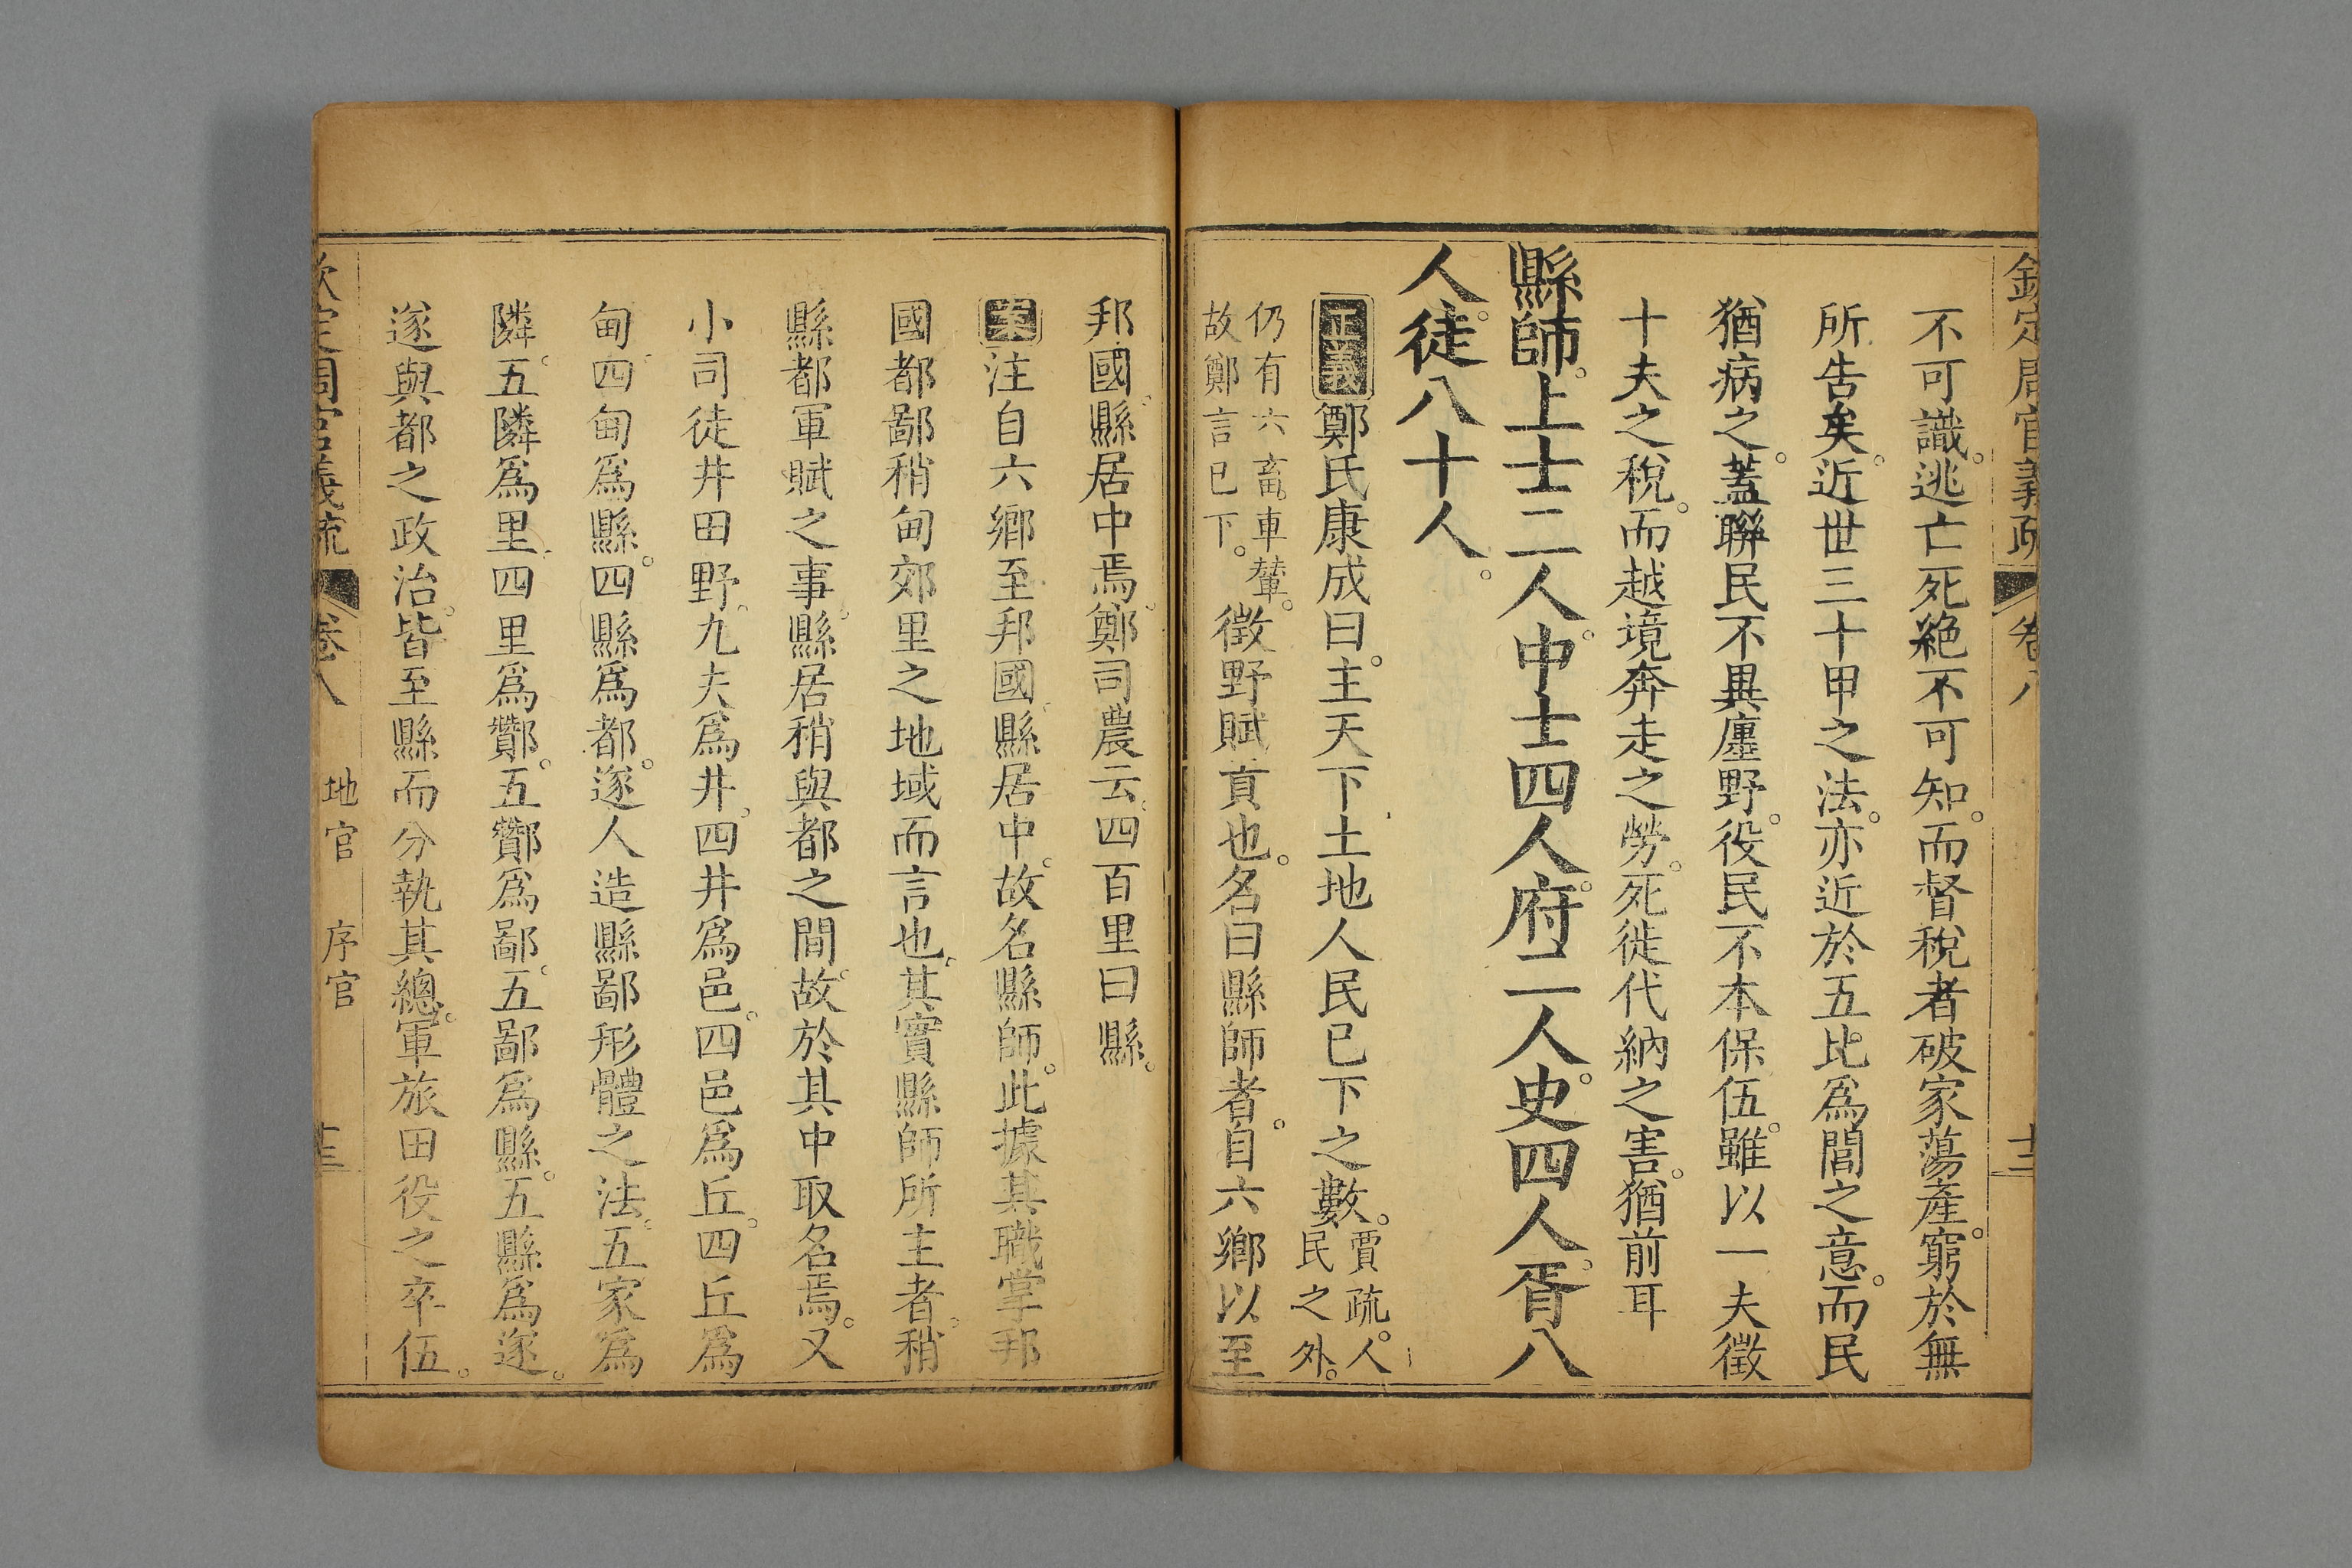 欽定周官義疏 卷八 十二
不可識。逃亡死絶不可知。而督稅者破家蕩產。窮於無
所告矣。近世三十甲之法。亦近於五比爲閭之意。而民
猶病之。蓋聯民不異廛野。役民不本保伍。雖以一夫徵
十夫之稅。而越境奔走之勞。死徙代納之害。猶前耳
縣師。上士二人。中士四人。府二人。史四人。胥八
人。徒八十人。
正義鄭氏康成曰。主天下土地人民已下之數。賈疏。人民之外。
仍有六畜。車輦。故鄭言已下。徵野賦貢也。名曰縣師者。自六鄉以至
邦國。縣居中焉。鄭司農云。四百里曰縣。
案注自六鄉至邦國。縣居中。故名縣師。此據其職掌邦
國都鄙稍甸郊里之地域而言也。其實縣師所主者。稍
縣都軍賦之事。縣居稍與都之間。故於其中取名焉。又
小司徒井田野。九夫爲井。四井爲邑。四邑爲丘。四丘爲
甸。四甸爲縣。四縣爲都。遂人造縣鄙形體之法。五家爲
隣。五隣爲里。四里爲酇。五酇爲鄙。五鄙爲縣。五縣爲遂。
遂與都之政治。皆至縣而分執其總。軍旅田役之卒伍。
欽定周官義疏 卷八 地官 序官